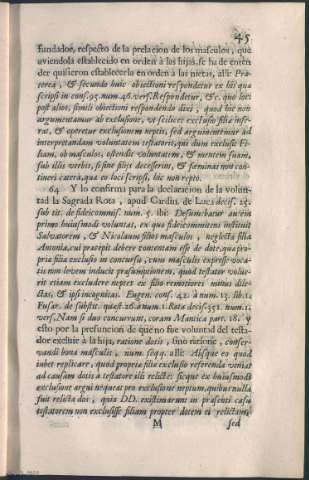 45
fundador, respecto de la prelacion de los masculos, que
aviendola establecido en orden à los hijos, se ha de enten
der quisieron establecerla en orden à las nietas, alli: Præ-
terea, & secundo huic obiectioni respondetur ex his quæ
scripsi in cons. 95. num. 46. vers. Respondetur, & c. quo loci
post alios, simili obiectioni respondendo dixi, quod hic non
argumentamur ab exclusione, ut scilicet exclusio filiæ infe-
rat, & operetur exclusionem neptis, sed arguimentimur ad
interpretandam voluntatem testatoris, qui dum exclusit Fi-
liam, ob masculos, ostendit voluntatem, & mentem suam,
sub illis verbis, si sine filijs decesserint, & fœminas non con-
tineri cætera, quæ eo loci scripsi, hic non repeto.
64 Y lo confirma para la declaracion de la volun-
tad la Sagrada Rota, apud Cardin. de Luca decis. 25.
sub tit. de fideicommis. num. 5. ibi: Desumebatur autem
primo huiusmodi voluntas, ex quo fideicommittens instituit
Salvatorem, & Nicolaum filios masculos, neglecta filia
Antonia, cui præcepit debere contentam esse de dote, qua pro-
pria filia exclusio in concursu, cum masculis expresse voca-
tis non levem inducit præsumptionem, quod testator volue-
rit etiam excludere neptes ex filio remotiores minus dile-
ctas, & ipsi incognitas. Eugen. cons. 42. à num. 13. lib. 1.
Fusar. de substit. quæst. 26. à num. 1. Rota decis. 551. num. 1.
vers. Nam si duo concurrunt, coram Mantica part. 18. y
esto por la presuncion de que no fue voluntad del testa-
dor excluir à la hija, ratione dotis, sino ratione, conser-
vandi bona masculis, num. seqq. alli: Absque eo quod
iubet replicare, quod propria filiæ exclusio referenda veniat
ad causam dotis à testatore illi relictæ: sicque ex huiusmodi
exclusione argui nequeat pro exclusione neptium, quibus nulla
fuit relicta dos, quia DD. existimarunt in præsenti casu
testatorem non exclusisse filiam propter dotem ei relictam,
M sed